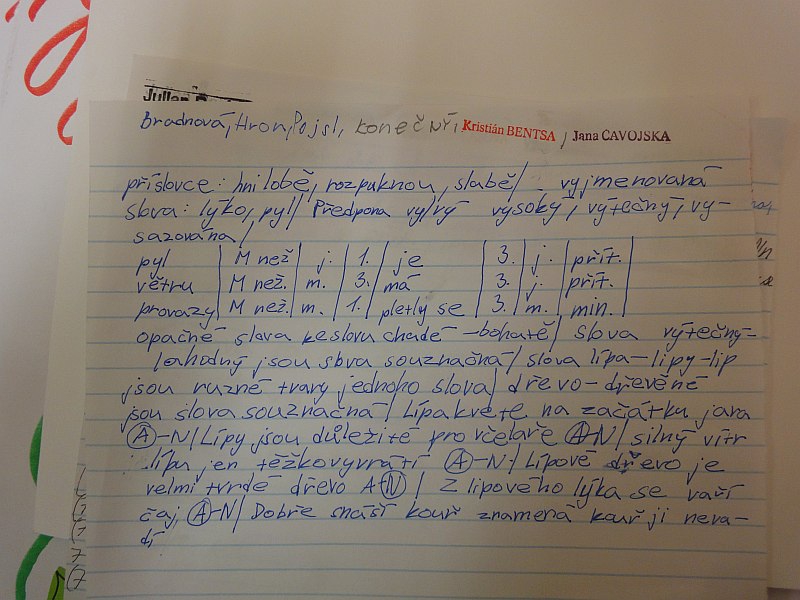 Julian
Bradnová, Hron, Pojsl, konečný, Kristián BENTSA, Jana CAVOJSKA
příslovce: hnilobě, rozpuknou, slabě/ vyjmenovaná
slova: lýko, pyl/ Předpona vy/vý vysoký, výtečný, vy-
sazována/
pyl | M než | j. | 1. | je | 3. | j. | přít.
větru | M než. | m. | 3. | má | 3. | j. | přít.
provazy | M než. | m. | 1. | pletly se | 3. | m. | min.
opačné slova ke slovu chudé - bohaté/ slova výtečný-
lahodný jsou slova souznačná/ slova lípa-lipy-lip
jsou ruzné tvary jednoho slova/ dřevo-dřevěné
jsou slova souznačná/ Lípa kvete na začátku jara
A-N/ Lípy jsou důležité pro včelaře A-N/ silný vítr
lípu jen těžko vyvrátí A-N/ Lipové dřevo je
velmi tvrdé dřevo A-N/ Z lipového lýka se vaří
čaj, A-N/ Dobře snáší kouř znamená kouř ji neva-
dí